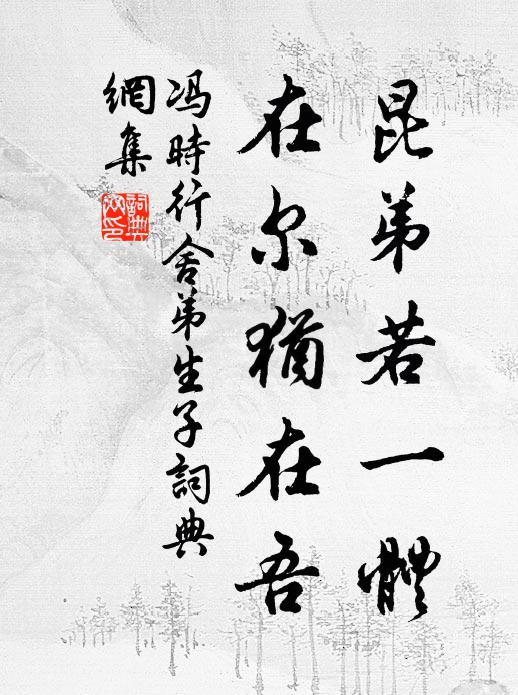 昆弟若一體
在尔猶在吾
冯時行舍弟生子詞典
網集
詞典
網印